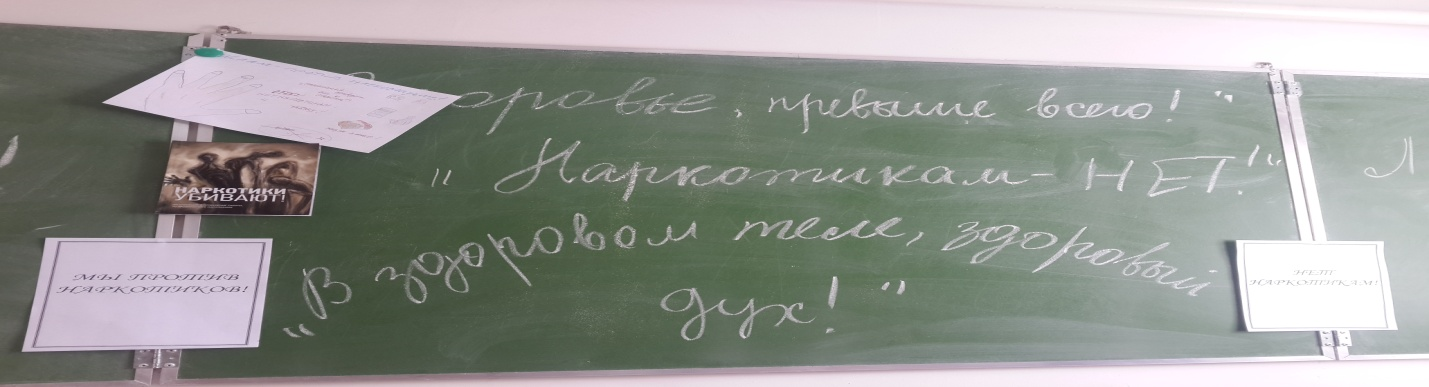 доровье, превыше всего!"
"Наркотикам - НЕТ!"
"В здоровом теле, здоровый
дух!"
НАРКОТИКИ
УБИВАЮТ!
МЫ ПРОТИВ
НАРКОТИКОВ!
НЕТ
НАРКОТИКАМ!
Л